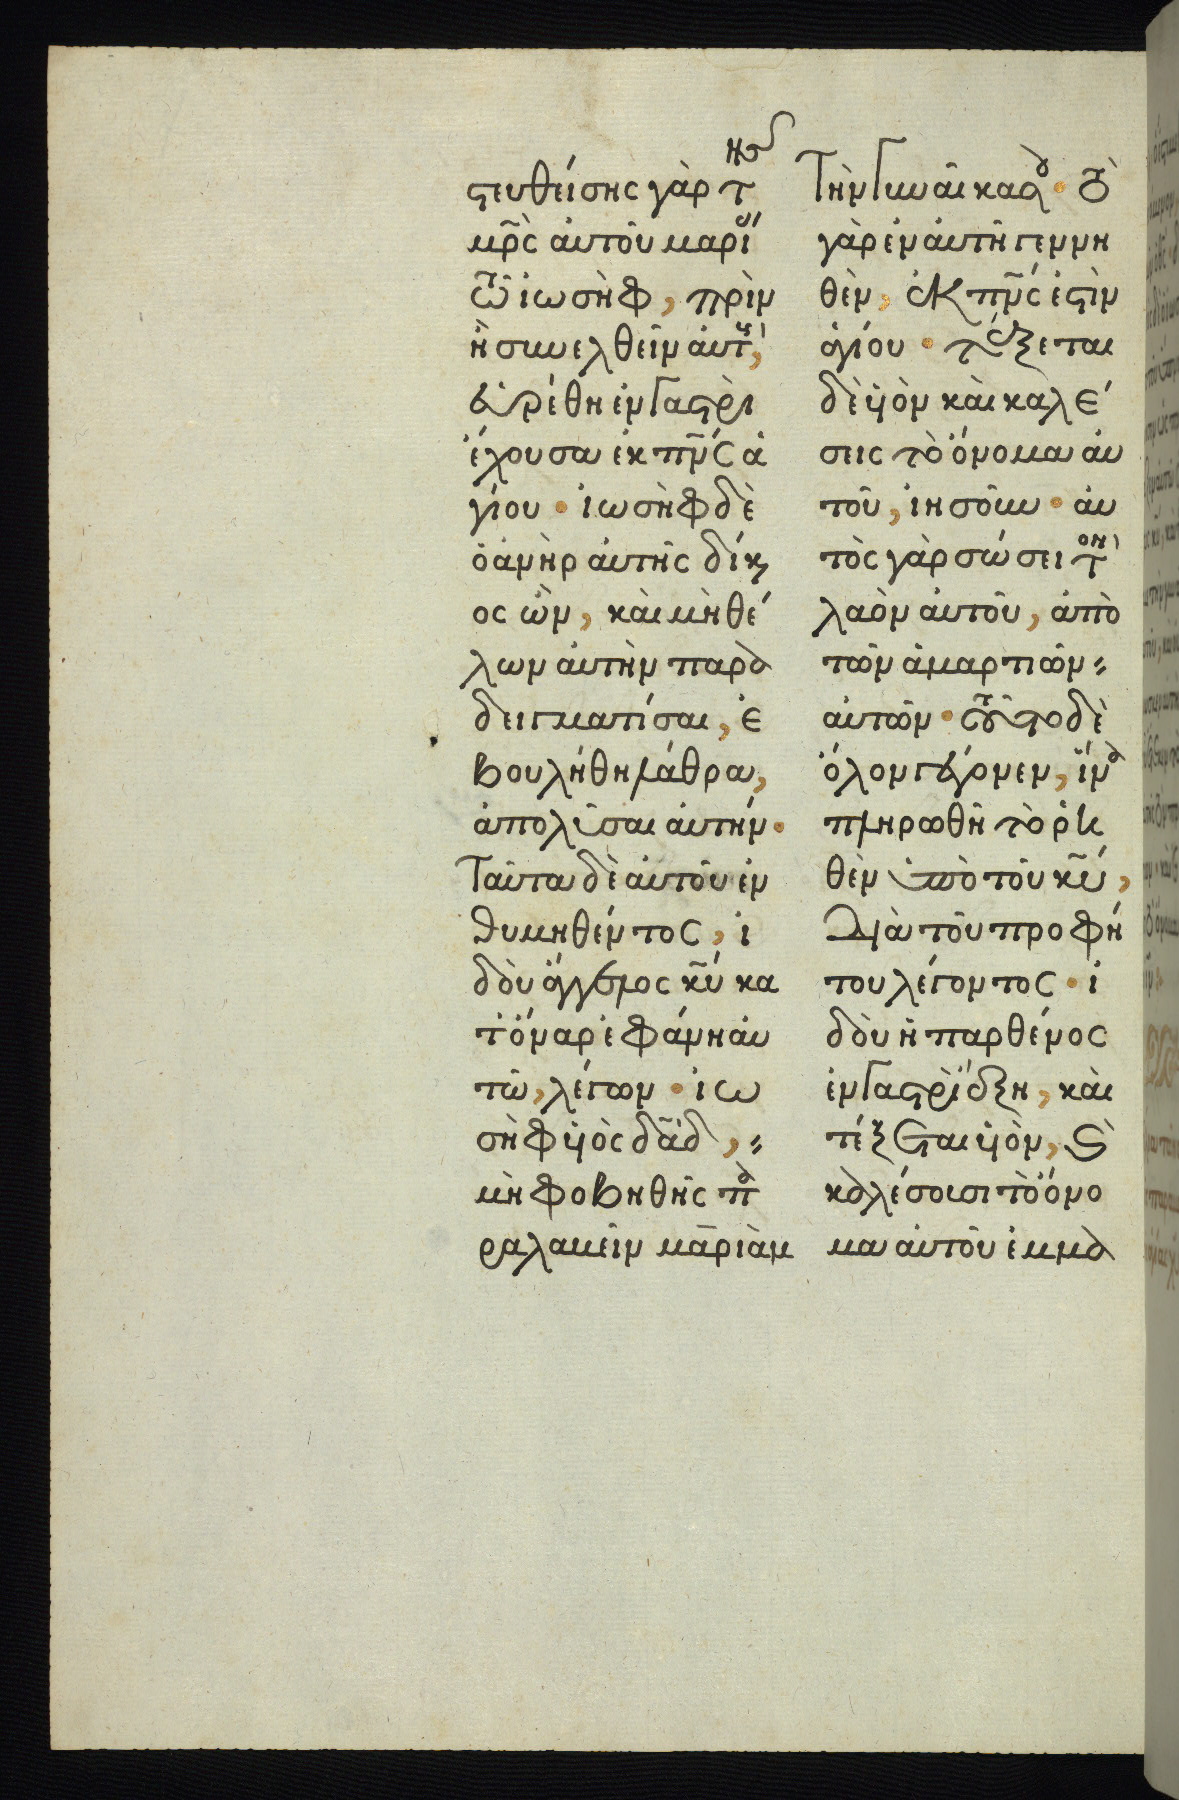 στευθείσης γὰρ τῆς
μρ̅ὸς ἀυτοῦ μαρίας
τῶ ἰωσὴφ, πρὶν
ἢ συνελθεῖν ἀυτοὺς,
ἑυρέθη ἐν γαστρὶ
ἔχουσα ἐκ πν̅ς ἁ
γίου · ἰωσὴφ δὲ
ὁ ἀνὴρ ἀυτῆς δίκαι
ος ὢν, καὶ μὴ θέ
λων ἀυτὴν παρα
δειγματίσαι, ἐ
βουλήθη λάθρα,
ἀπολῦσαι ἀυτήν ·
Ταῦτα δὲ ἀυτοῦ ἐν
θυμηθέντος, ἰ
δοὺ ἄγγελος κ̅υ κα
τ' ὄναρ ἐφάνη ἀυ
τῶ, λέγων · ἰω
σὴφ ὑιὸς δα̅δ,
μὴ φοβηθῆς πα
ραλαβεῖν μαριὰμ
Τὴν γυναῖκα σου · τὸ
γὰρ ἐν ἀυτῆ γεννη
θὲν, ἐκ πν̅ς ἐστὶν
ἁγίου · τέξεται
δὲ ὑιὸν καὶ καλέ
σεις τὸ ὄνομα ἀυ
τοῦ, ἰησοῦν · ἀυ
τὸς γὰρ σώσει τὸν
λαὸν ἀυτοῦ, ἀπὸ
τῶν ἁμαρτιῶν
ἀυτῶν · τοῦτο δὲ
ὅλον γέγονεν, ἵνα
πληρωθῆ τὸ ῥη
θὲν ὑπὸ τοῦ κ̅υ,
διὰ τοῦ προφή
του λέγοντος · ἰ
δοὺ ἡ παρθένος
ἐν γαστρὶ ἕξει, καὶ
τέξεται ὑιὸν, καὶ
καλέσουσι τὸ ὄνο
μα ἀυτοῦ ἐμμα